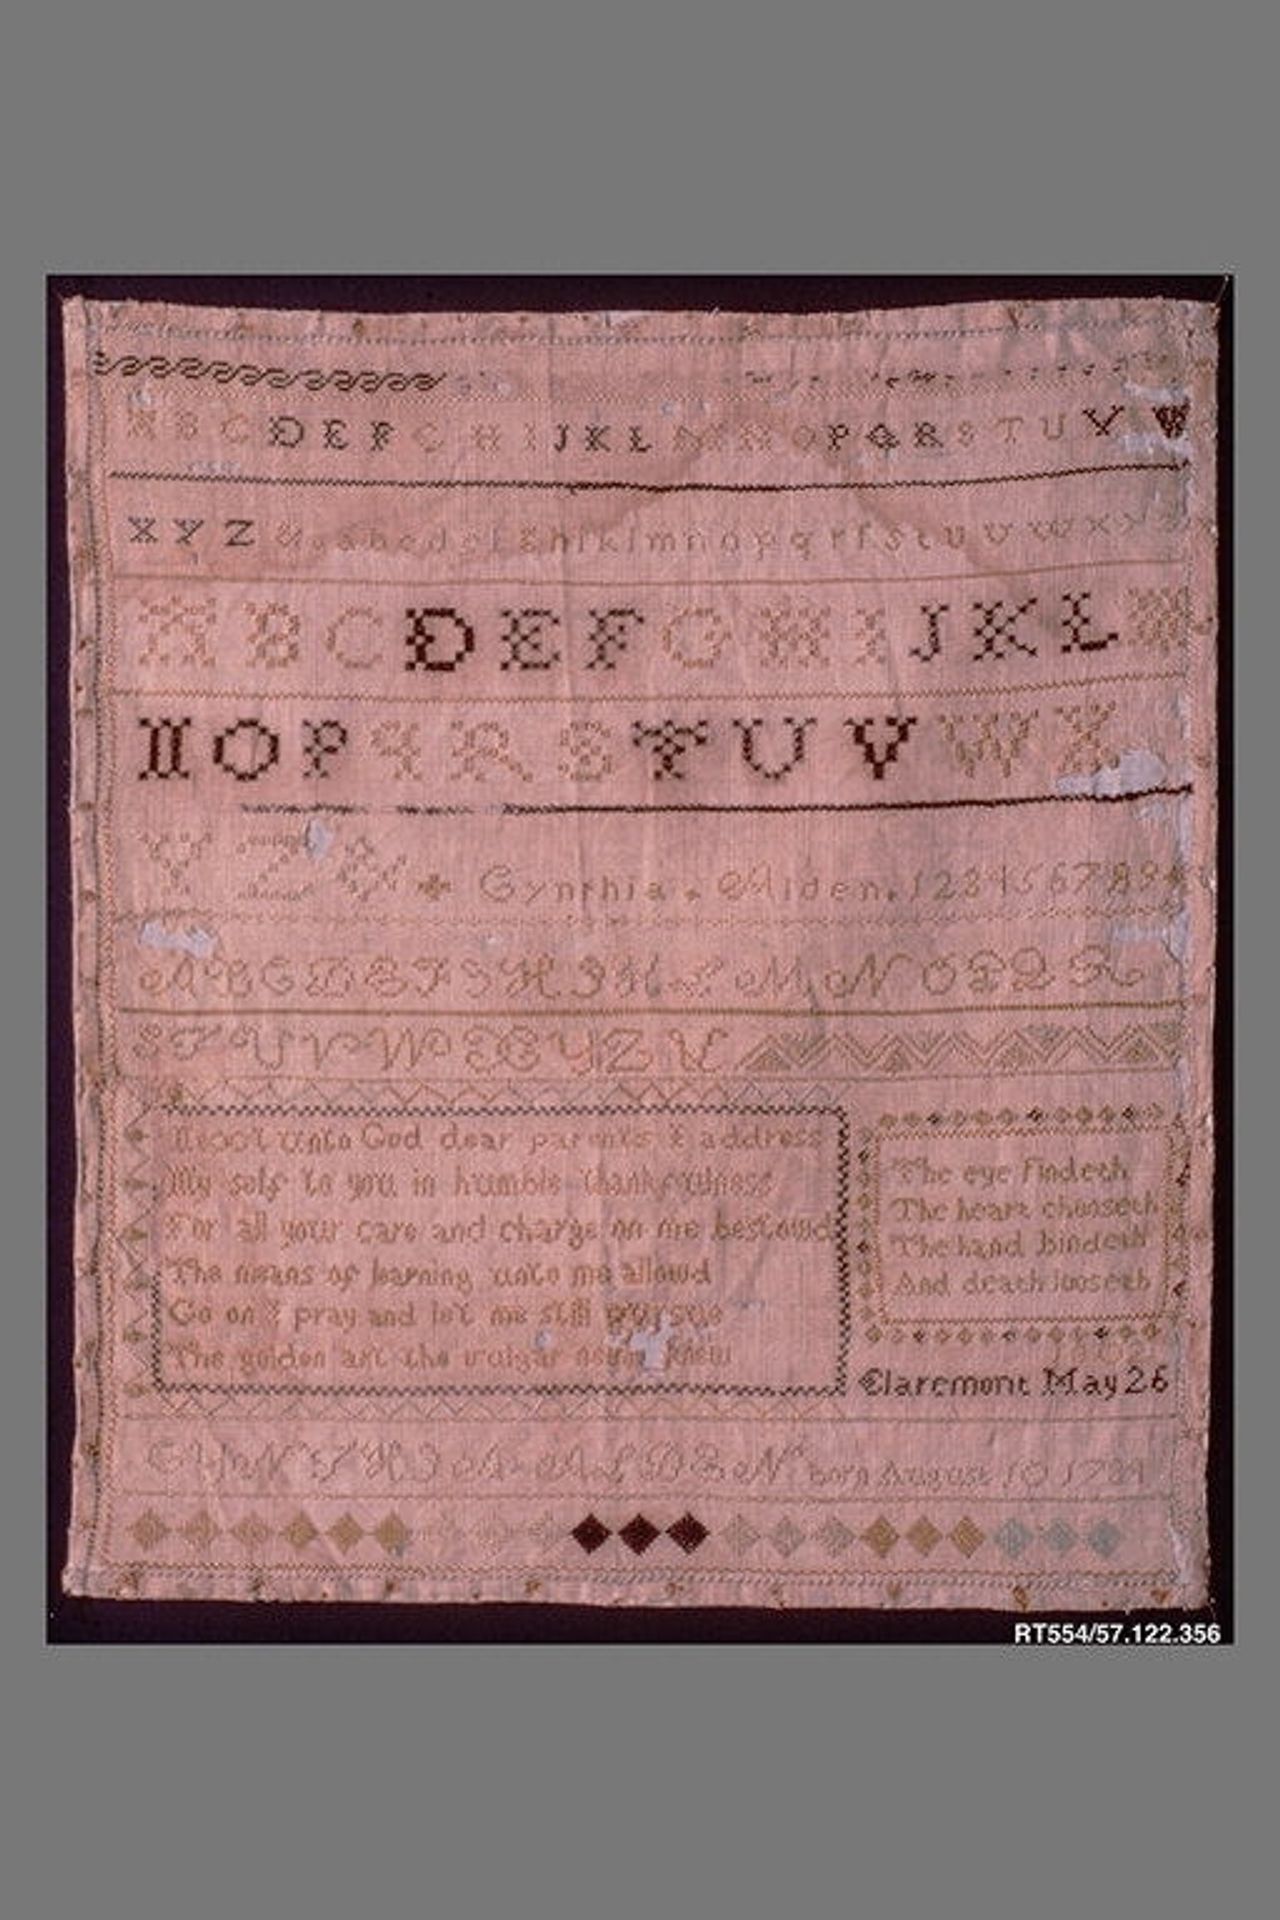 A B C D E F G H I J K L M N O P Q R S T U V W
X Y Z & a b c d e f g h i k l m n o p q r ſ s t u v w x y z
A B C D E F G H I J K L M
N O P Q R S T U V W X
Y Z & Cynthia . Alden . 1 2 3 4 5 6 7 8 9
A B C D E F G H I K L M N O P Q R
S T U V W X Y Z &
Next unto God dear parents I address
My self to you in humble thankfulness
For all your care and charge on me bestowd
The means of learning unto me allowd
Go on I pray and let me still pursue
The golden art the vulgar never knew
The eye findeth
The heart chooseth
The hand bindeth
And death looseth
Claremont May 26
CYNTHIA ALDEN born August 10 1789
RT554/57.122.356